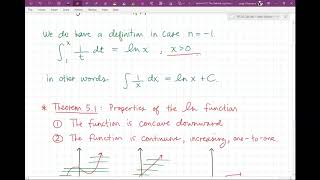 We do have a definition in case n = -1.
∫₁ˣ 1/t dt = ln x , x>0
in other words. ∫ 1/x dx = ln x + C.
* Theorem 5.1: Properties of the ln function
① The function is concave downward
② The function is continuous, increasing, one-to-one.